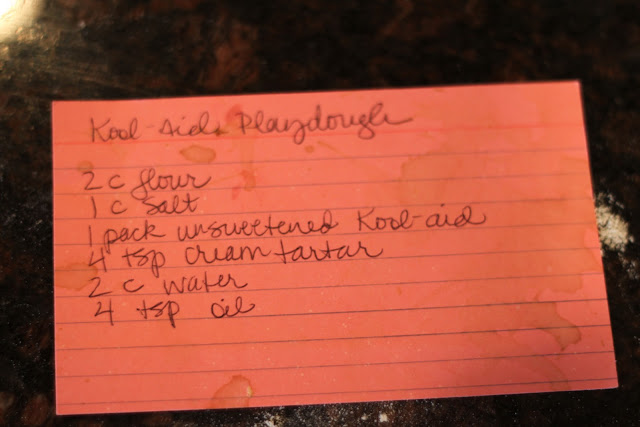 Kool-Aid Playdough
2 c flour
1 c salt
1 pack unsweetened Kool-aid
4 tsp cream tartar
2 c water
4 tsp oil